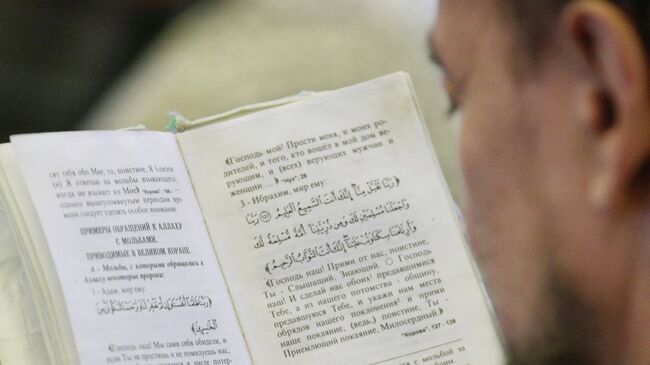 сят тебя обо Мне, то, поистине, Я близок
(и) Я отвечаю на мольбы взывающего,
когда он взывает ко Мне» "Корова" 186, и
однако вышеупомянутым периодам времени
следует уделять особое внимание.
ПРИМЕРЫ ОБРАЩЕНИЙ К АЛЛАХУ
С МОЛЬБАМИ,
ПРИВОДИМЫЕ В ВЕЛИКОМ КОРАНЕ.
А - Мольбы, с которыми обращались к
Аллаху некоторые пророки:
1 - Адам, мир ему:
«Господь наш! Мы сами себя обидели, и
если Ты не простишь и не помилуешь нас,
«Господь мой! Прости меня, и моих ро-
дителей, и того, кто вошёл в мой дом ве-
рующим, и (всех) верующих мужчин и
женщин ...» "Нух", 28
3 - Ибрахим, мир ему:
﴿رَبَّنَا تَقَبَّلْ مِنَّا إِنَّكَ أَنتَ السَّمِيعُ الْعَلِيمُ ۝ رَبَّنَا
وَاجْعَلْنَا مُسْلِمَيْنِ لَكَ وَمِن ذُرِّيَّتِنَا أُمَّةً مُّسْلِمَةً لَّكَ
وَأَرِنَا مَنَاسِكَنَا وَتُبْ عَلَيْنَا إِنَّكَ أَنتَ التَّوَّابُ الرَّحِيمُ﴾
«Господь наш! Прими от нас, поистине,
Ты - Слышащий, Знающий Господь
наш! И сделай нас обоих предавшимися
Тебе, а из нашего потомства - общину,
предавшуюся Тебе, и укажи нам места
обрядов нашего поклонения! и прими
наше покаяние, (ведь) поистине, Ты -
Приемлющий покаяние, Милосердный!»
"Корова", 127 - 128
с мольбой за